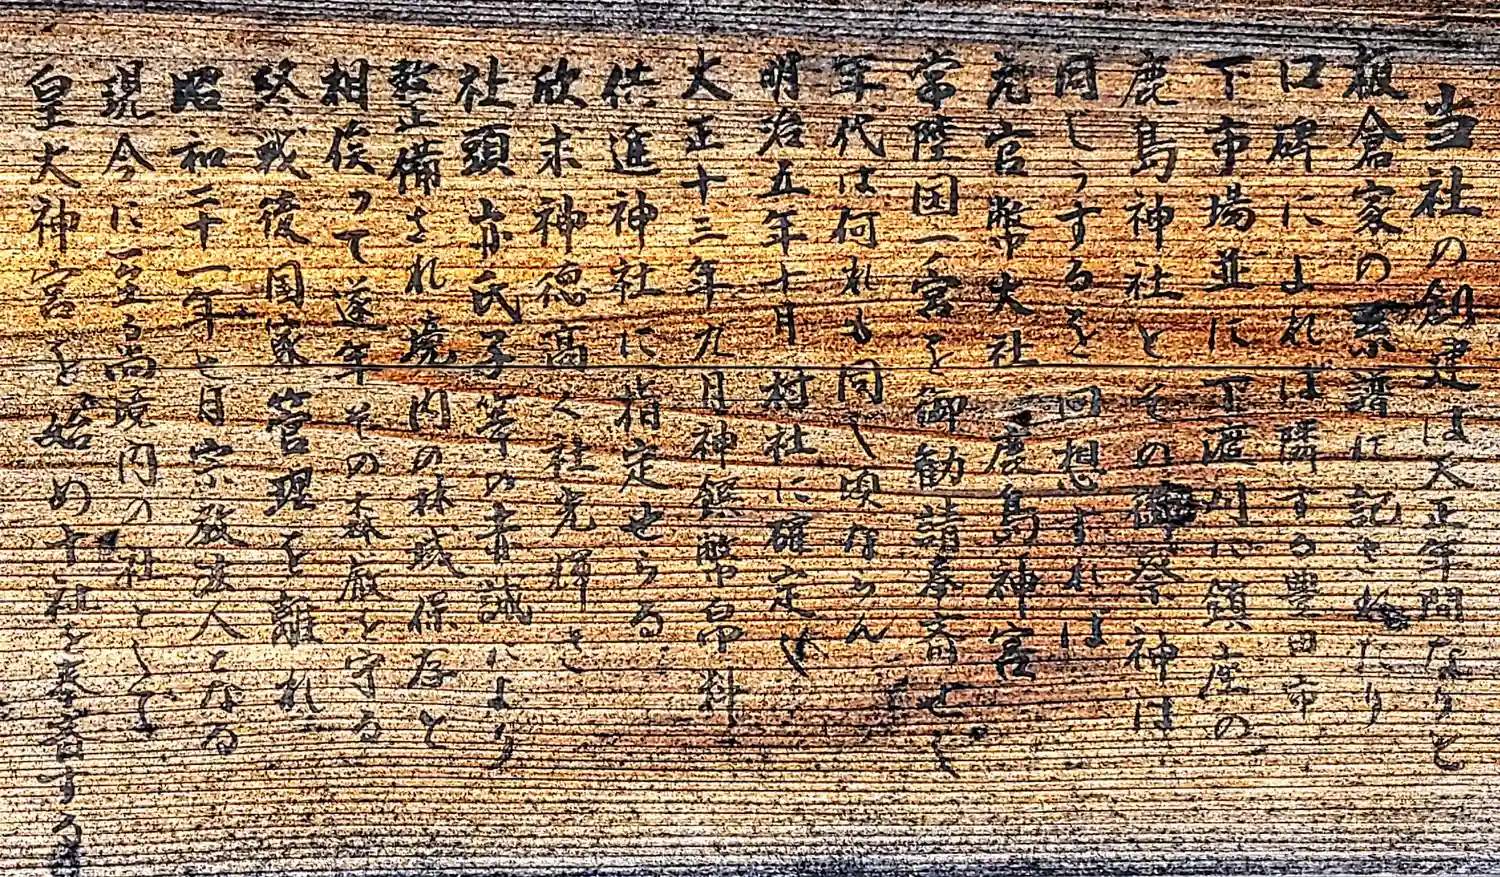 当社の創建は天正年間なりと
板倉家の系譜に記されたり
口碑によれば隣する豊田市
下市場並に丁渡刈に鎮座の
鹿島神社とその御祭神は
同じうするを回想すれば
元官幣大社 鹿島神宮
常陸国一宮を御勧請奉斎せし
年代は何れも同じ頃ならん
明治五年十月村社に確定し
大正十三年九月神饌幣帛料
供進神社に指定せらる
欣末神徳高く社光輝き
社頭亦氏子等の赤誠により
整正備され境内の林域保存と
相俟って遂年その森厳を守る
終戦後国家管理を離れ
昭和二十一年七月宗教法人となる
現今に至る尚境内の社として
皇大神宮を始め十社を奉斎する